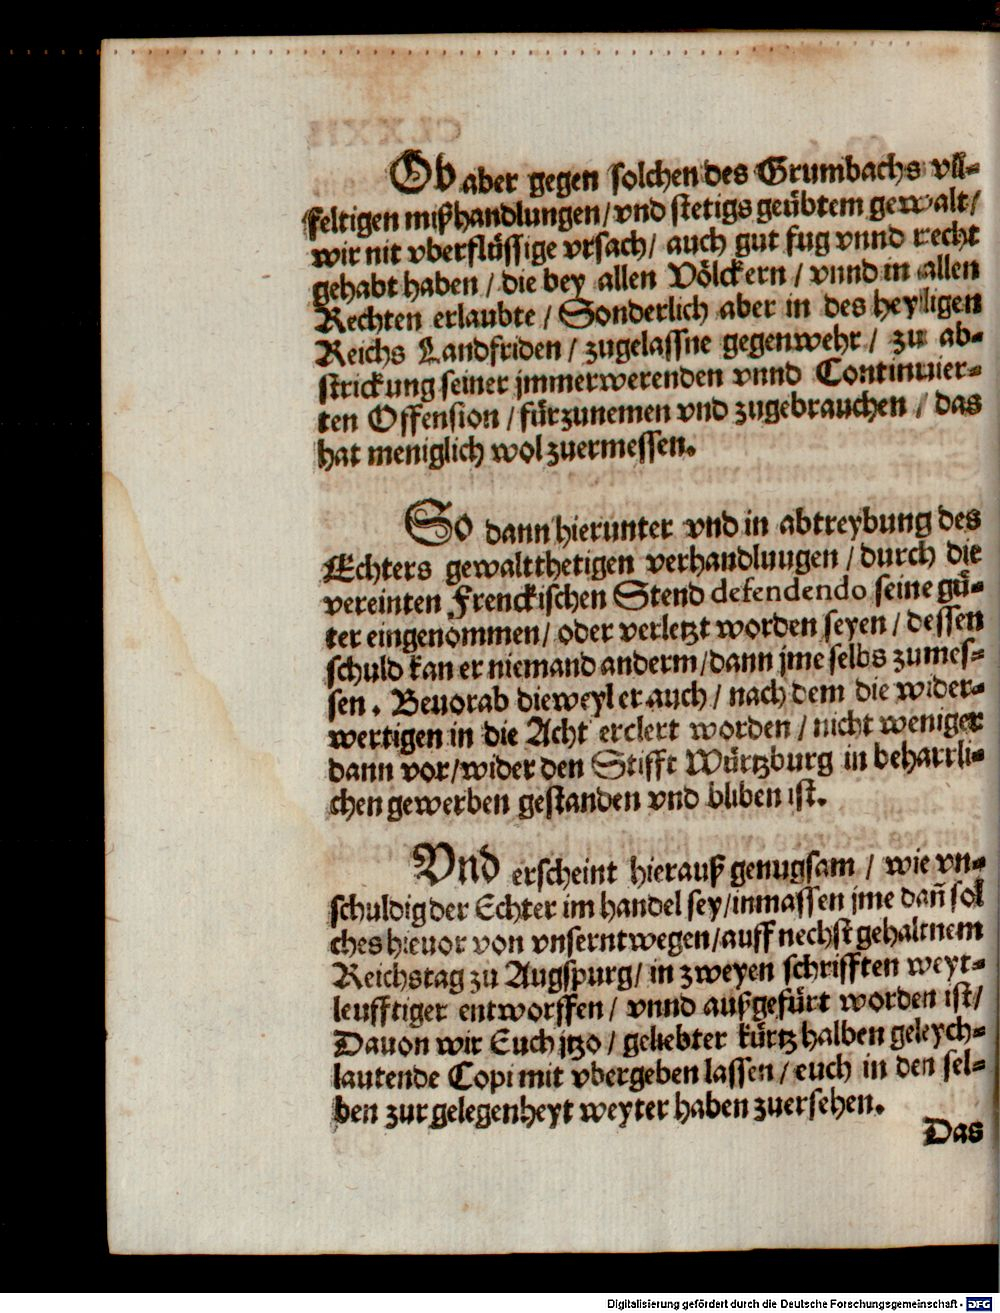 Ob aber gegen solchen des Grumbachs vil-
feltigen mißhandlungen/vnd stetigs geübtem gewalt/
wir nit vberflüssige vrsach/ auch gut fug vnnd recht
gehabt haben / die bey allen Völckern / vnnd in allen
Rechten erlaubte / Sonderlich aber in des heyligen
Reichs Landfriden / zugelassne gegenwehr / zu ab-
strickung seiner jmmerwerenden vnnd Continuier-
ten Offension / fürzunemen vnd zugebrauchen / das
hat meniglich wol zuermessen.
So dann hierunter vnd in abtreybung des
Echters gewaltthetigen verhandluugen / durch die
vereinten Frenckischen Stend defendendo seine gü-
ter eingenommen/ oder verletzt worden seyen / dessen
schuld kan er niemand anderm/dann jme selbs zumes-
sen. Beuorab dieweyl er auch / nach dem die wider-
wertigen in die Acht erclert worden / nicht weniger
dann vor/wider den Stifft Würtzburg in beharrli-
chen gewerben gestanden vnd bliben ist.
Vnd erscheint hierauß genugsam / wie vn-
schuldig der Echter im handel sey/inmassen jme dañ sol
ches hieuor von vnserntwegen/auff nechst gehaltnem
Reichstag zu Augspurg/ in zweyen schrifften weyt-
leufftiger entworffen / vnnd außgefürt worden ist/
Dauon wir Euch jtzo / geliebter kürtz halben geleych-
lautende Copi mit vbergeben lassen / euch in den sel-
ben zur gelegenheyt weyter haben zuersehen.
Das
Digitalisierung gefördert durch die Deutsche Forschungsgemeinschaft - DFG